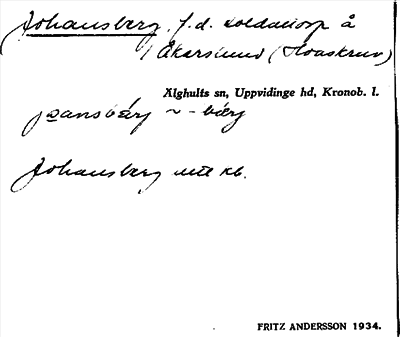 Johansberg, f.d. soldattorp å
Åkerslund (Hvaskruv)
Älghults sn, Uppvidinge hd, Kronob. l.
jo̲ansbärj ~ -bärj
Johansberg utt kb.
FRITZ ANDERSSON 1934.